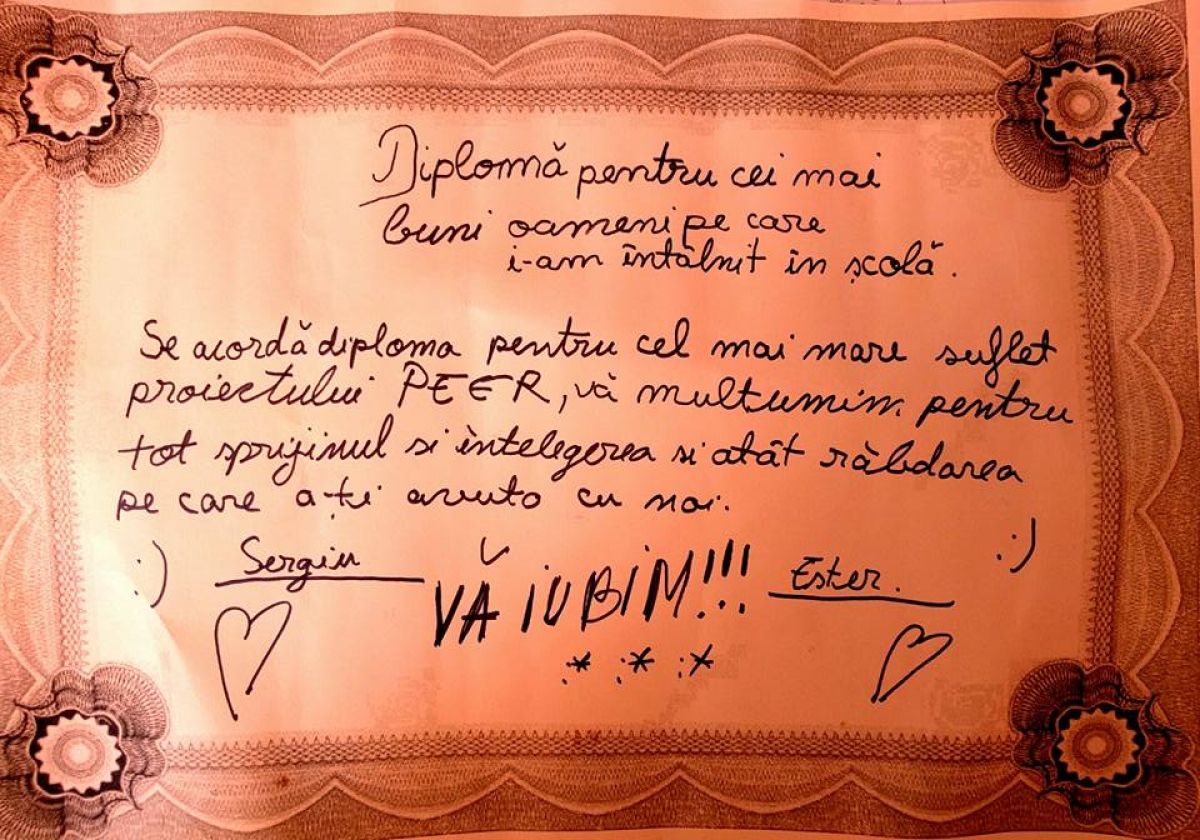 Diplomă pentru cei mai
buni oameni pe care
i-am întâlnit în școlă.
Se acordă diploma pentru cel mai mare suflet
proiectului PEER, vă multumim pentru
tot sprijinul si întelegerea si atât răbdarea
pe care a-ti avuto cu noi.
:) Sergiu VĂ iUBiM!!! Ester. :)
:* :* :*